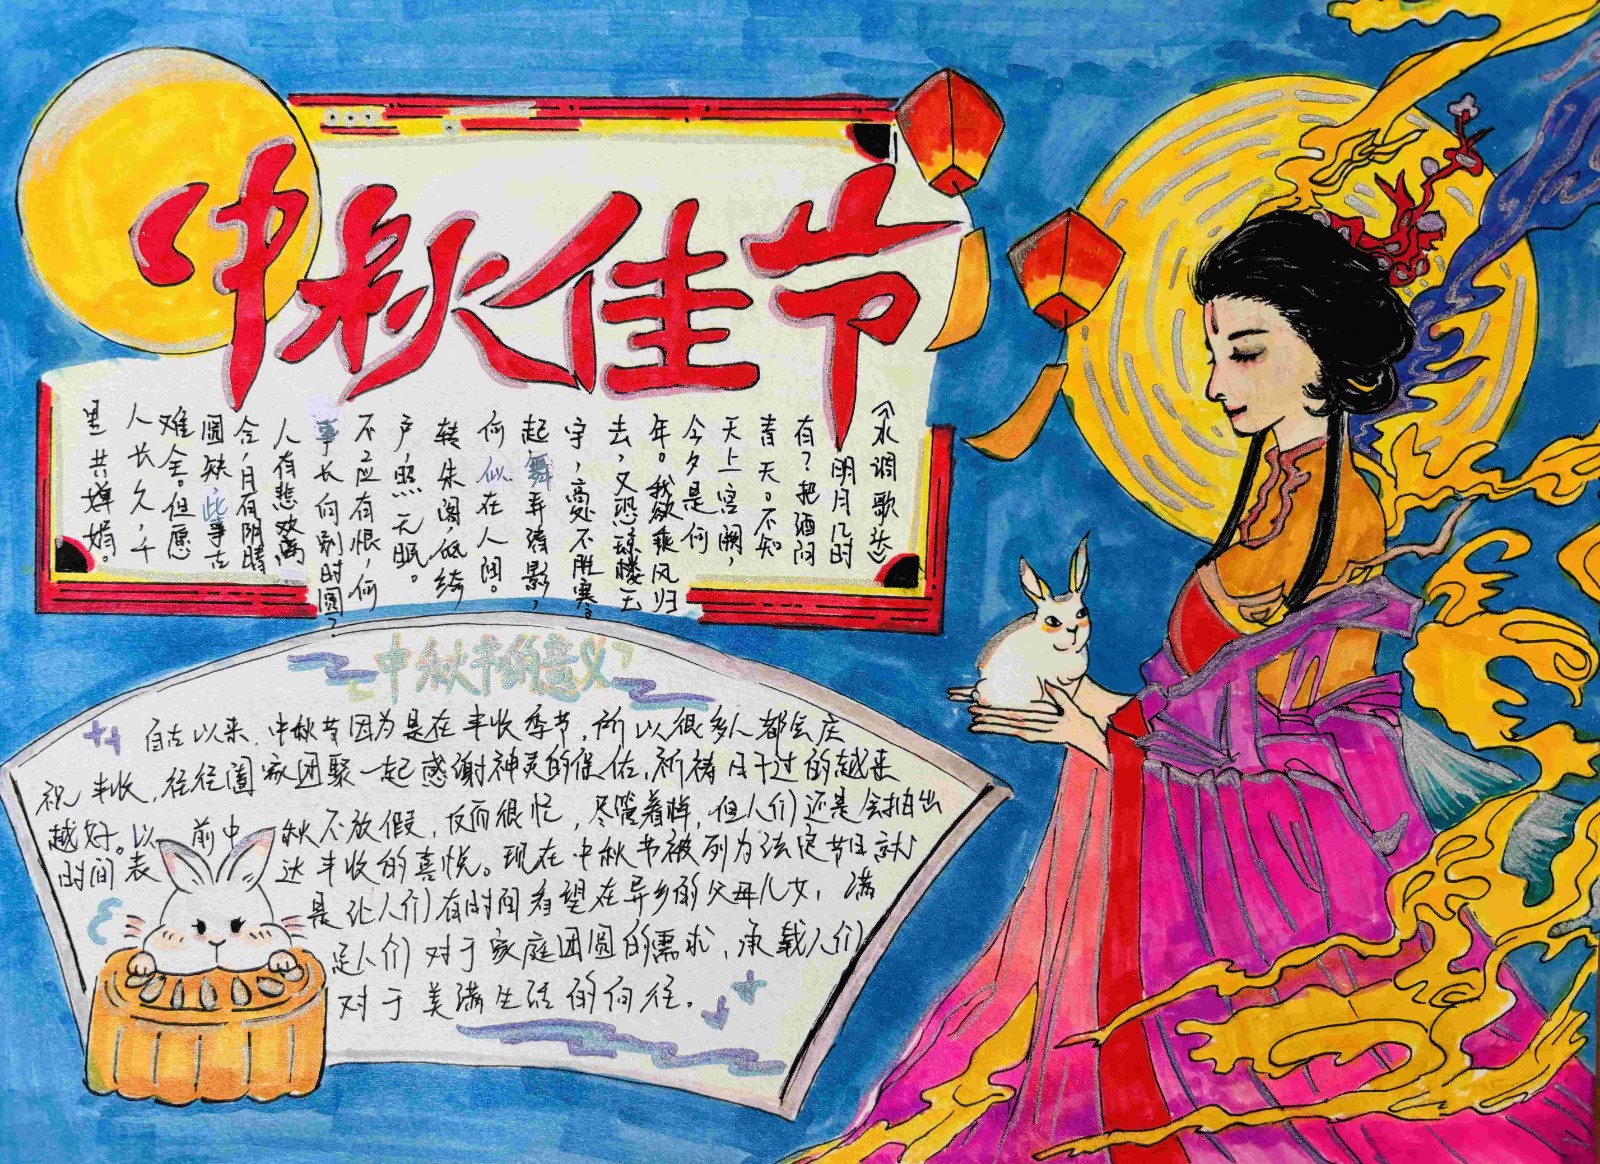 中秋佳节
《水调歌头》
明月几时
有？把酒问
青天。不知
天上宫阙，
今夕是何
年。我欲乘风归
去，又恐琼楼玉
宇，高处不胜寒。
起舞弄清影，
何似在人间。
转朱阁，低绮
户，照无眠。
不应有恨，何
事长向别时圆？
人有悲欢离
合，月有阴晴
圆缺，此事古
难全。但愿
人长久，千
里共婵娟。
中秋节的意义
自古以来，中秋节因为是在丰收季节，所以很多人都会庆
祝丰收，往往阖家团聚一起感谢神灵的保佑，祈祷日子过的越来
越好。以前中秋不放假，反而很忙，尽管着，但人们还是会抽出
时间表达丰收的喜悦。现在中秋节被列为法定节日就
是让人们有时间看望在异乡的父母儿女，满
足人们对于家庭团圆的需求，承载人们
对于美满生活的向往。